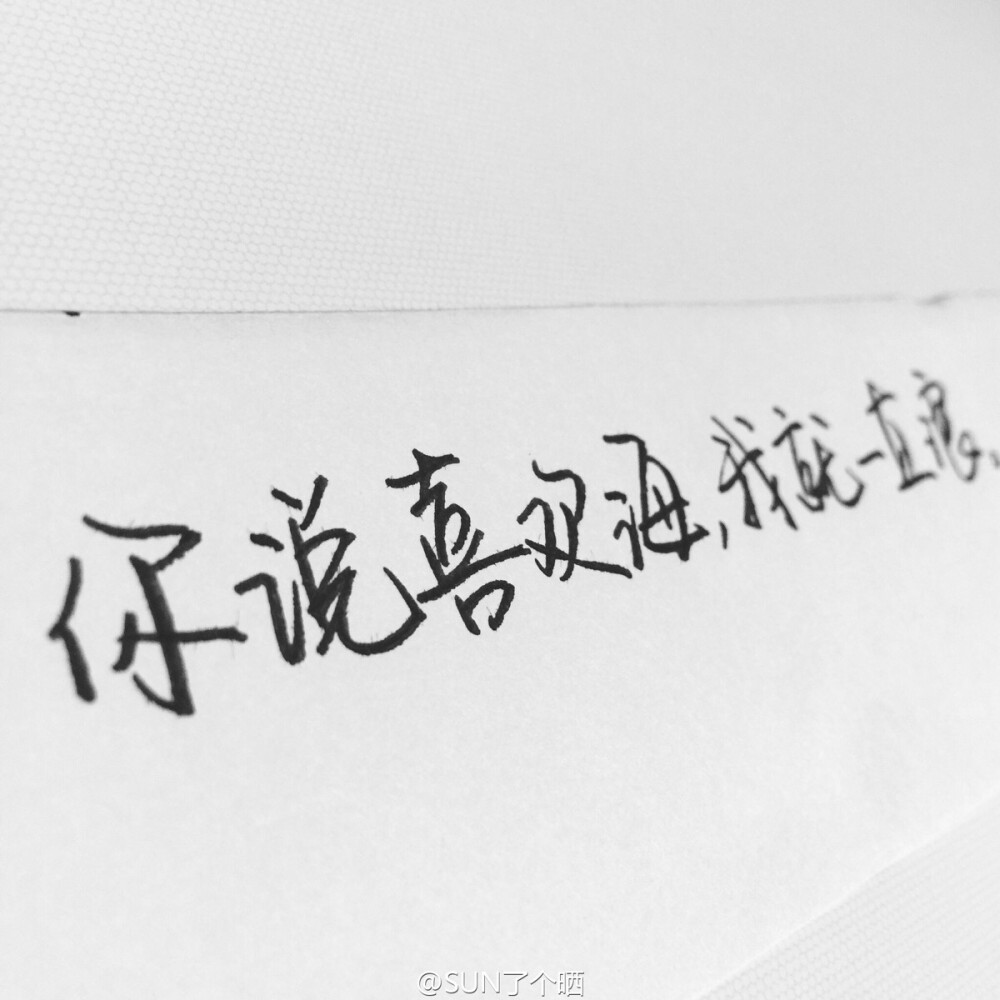 你说喜欢海,我就一直浪、
@SUN了个晒